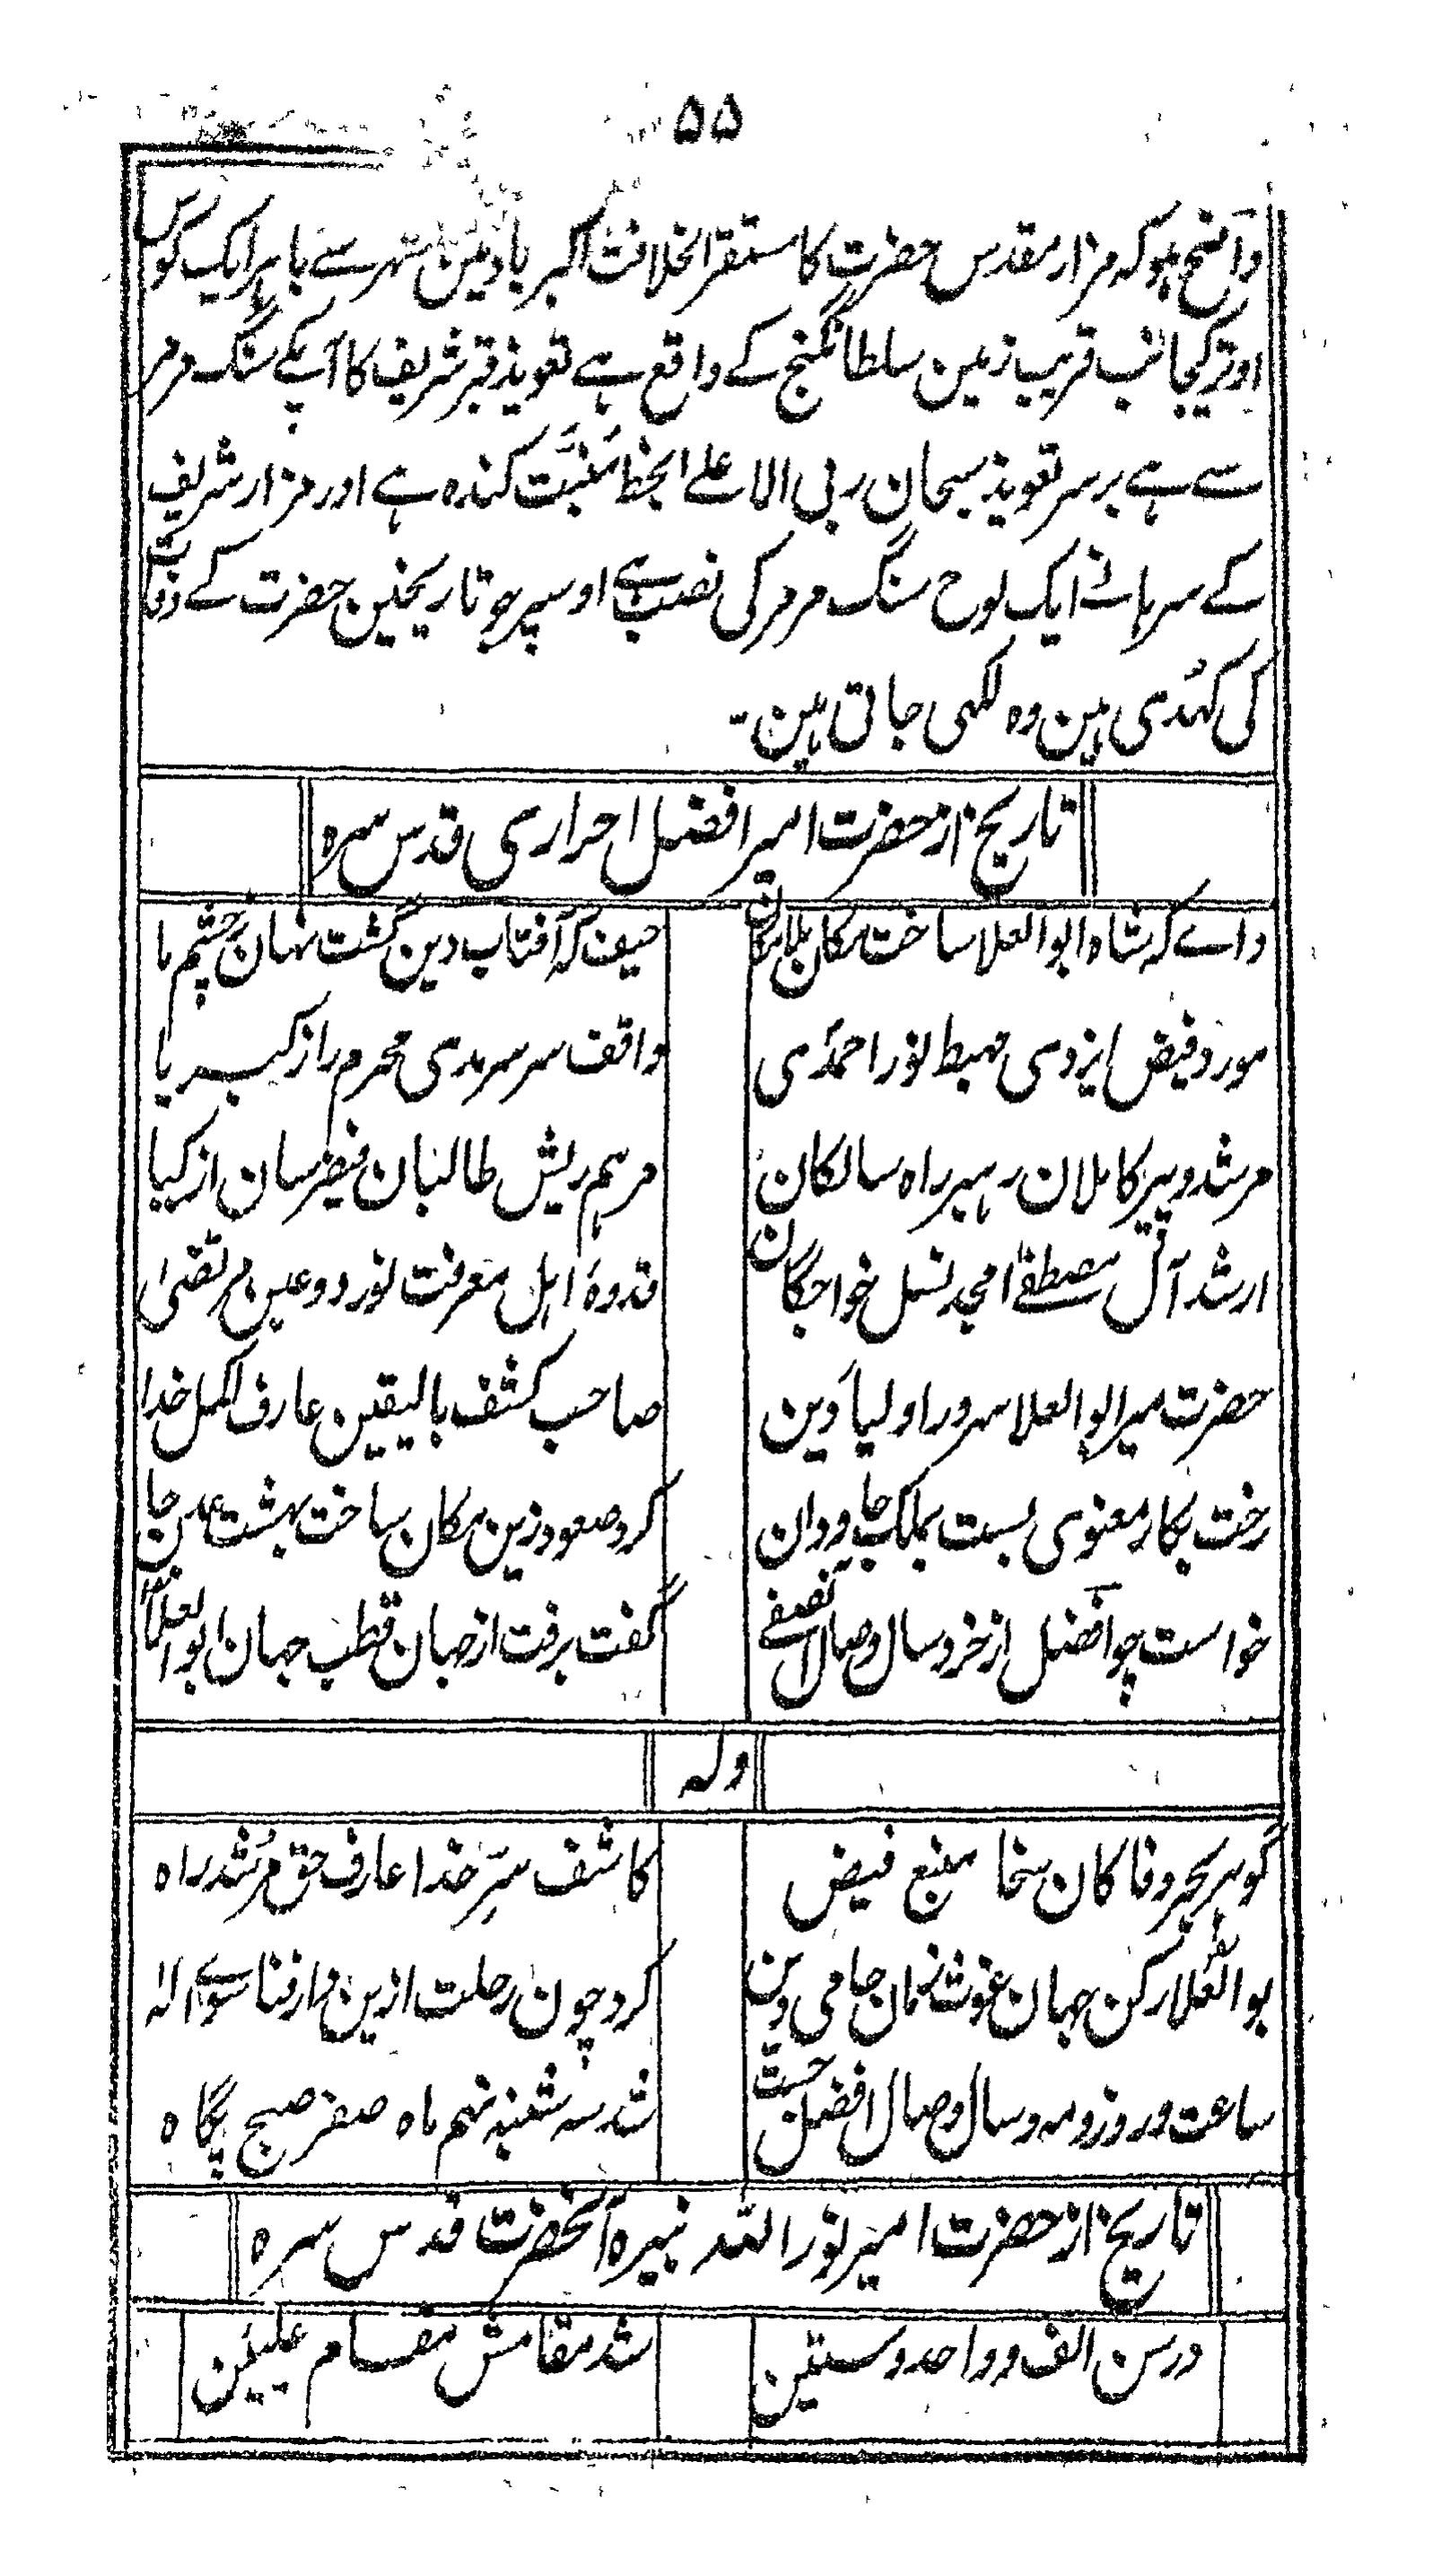 ۵۵
واضح ہو کہ مزار مقدس حضرت کا مستقر الخلافت اکبر باد مین شہر سے باہر ایک کوس
اوتر کیجانب قریب زمین سلطانگنج کے واقع ہے تعویذ قبر شریف کا آپکے سنگ مرمر
سے ہے بر سر تعویذ سبحان ربی الاعلے بخط مثبت کندہ ہے اور مزار شریف
کے سرہانے ایک لوح سنگ مرمر کی نصب ہے اوسپر جو تاریخین حضرت کے وفات
کی کہدی ہین وہ لکہی جاتی ہین ۔
تاریخ از حضرت امیر افضل احراری قدس سرہ
واے کہ شاہ ابو العلا ساخت مکان بلامکان حیف کہ آفتاب دین گشت نہان ز چشم ما
مورد فیض ایزدی مہبط نور احمدی واقف سر سرمدی محرم راز کبریا
مرشد و پیر کاملان رہبر راہ سالکان مرہم ریش طالبان فیض رسان ازکیا
ارشد آل مصطفےٰ امجد نسل خواجگان قدوۂ اہل معرفت نور دو عین مرتضیٰ
حضرت میر ابو العلا سرور اولیاء دین صاحب کشف بالیقین عارف اکمل خدا
رخت بکار معنوی بست بملک جاودان کرد صعود زین مکان ساخت بہشت عدن جا
خواست چو افضل از خرد سال وصال آنصفے گفت برفت از جہان قطب جہان ابو العلا
ولہ
گوہر بحر وفا کان سخا منبع فیض کاشف سِرّ خدا عارف حق مُرشد راہ
بو العلا رکن جہان غوث زمان حامی دین کرد چون رحلت ازین دار فنا سوے الہ
ساعت و روز و مہ و سال وصال افضل جست شد سہ شنبہ نہم ماہ صفر صبح پگاہ
تاریخ از حضرت امیر نور اللہ نبیرہ آنحضرت قدس سرہ
در سن الف و واحد و ستین شد مقامش مقام علیین